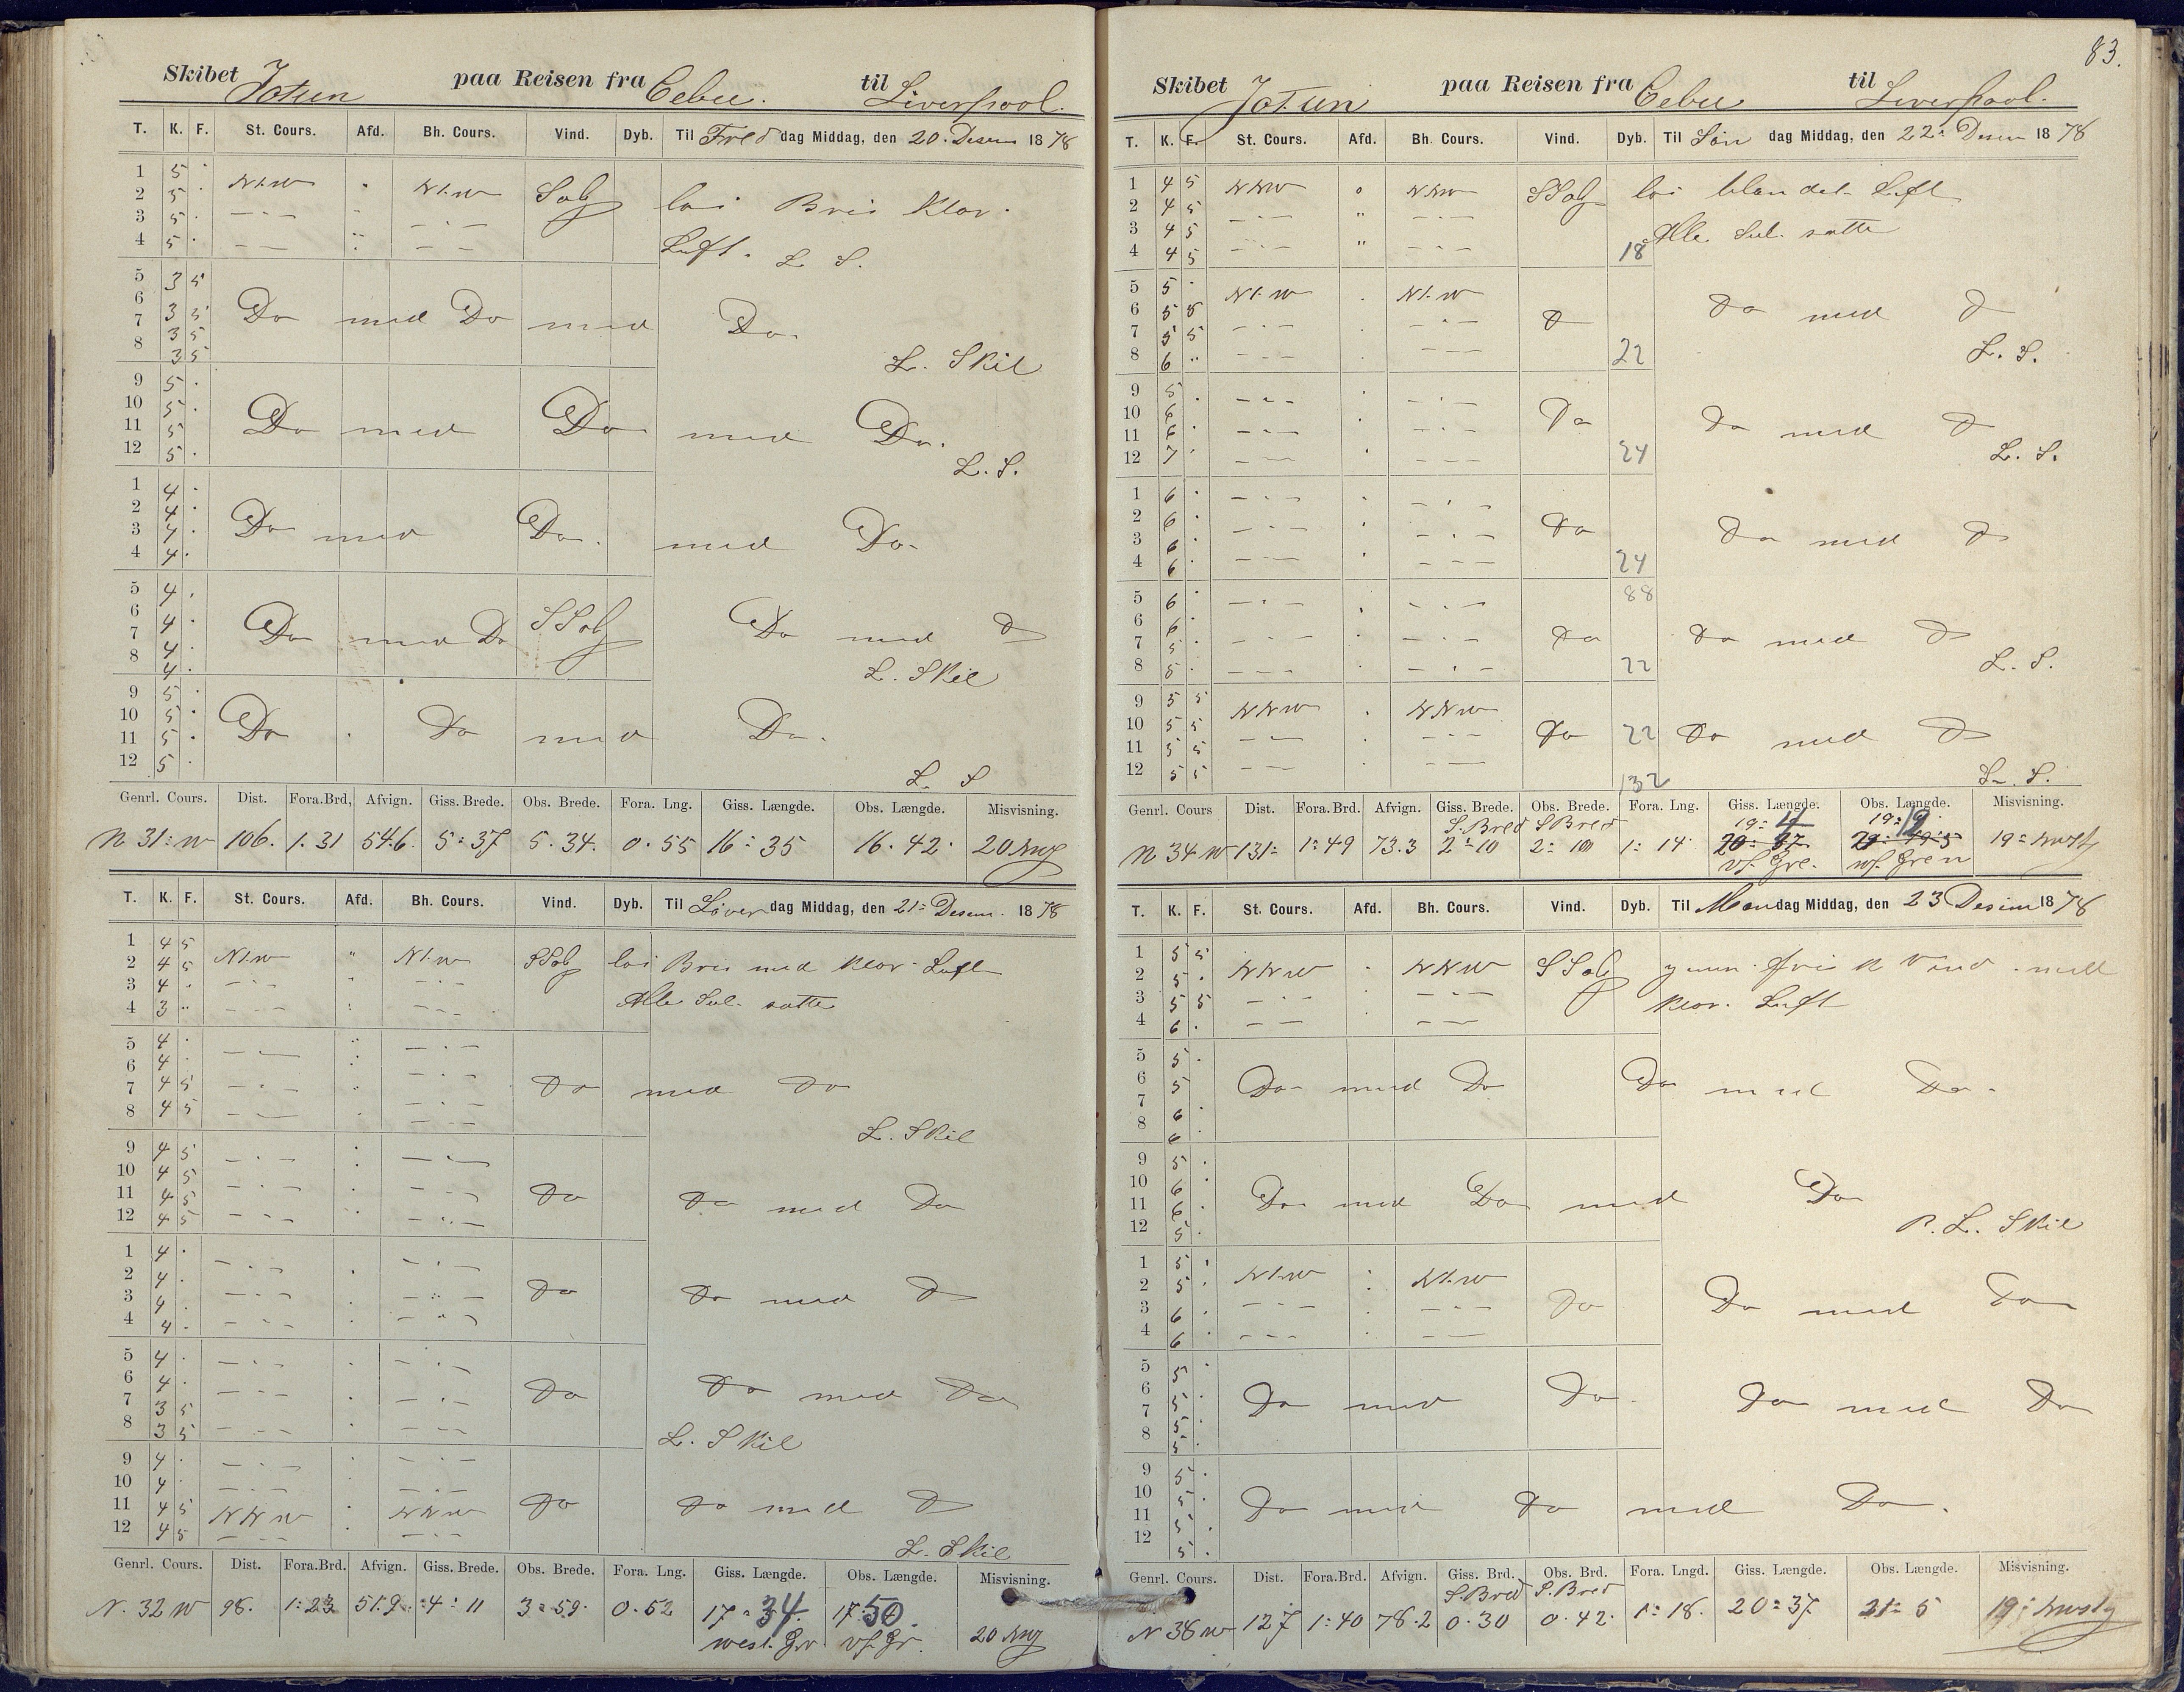 Skibet Jotun paa Reisen fra Cebu. til Liverpool.
T. K. F. St. Cours. Afd. Bh. Cours. Vind. Dyb. Til Fre dag Middag, den 20. Desem 1878
1 5 .
2 5 . N.t.W . N.t.W S Olg lai Bris klar.
3 5 .
4 5 . Luft. L S.
5 3 5
6 3 5 Do med Do med Do.
7 3 5
8 3 5 L. Skil
9 5 .
10 5 .
11 5 . Do med Do med Do.
12 5 . L. S.
1 4 .
2 4 .
3 4 . Do med Do. med Do.
4 4 .
5 4 .
6 4 . Do med Do S S Olg Do med D
7 4 .
8 4 . L. Skil
9 5 .
10 5 .
11 5 . Do . Do med Do.
12 5 . L. S
Genrl. Cours. Dist. Fora.Brd, Afvign. Giss. Brede. Obs. Brede. Fora. Lng. Giss. Længde. Obs. Længde. Misvisning.
N 31: W 106. 1.31 54.6. 5:37 5.34. 0.55 16:35 16.42.
T. K. F. St. Cours. Afd. Bh. Cours. Vind. Dyb. Til Løver dag Middag, den 21: Desem. 1878
1 4 5
2 4 5 N.t.W " N.t.W S S Olg lai Bris med klar Luft
3 4 .
4 3 " Alle Seil satte
5 4 .
6 4 .
7 4 5 Do med Do
8 4 5
L. Skil
9 4 5
10 4 5
11 4 5 Do Do med Do
12 4 5
1 4 .
2 4 .
3 4 . Do Do med D
4 4 .
5 4 .
6 4 . Do Do med Do
7 3 5
8 3 5 L. Skil
9 4 .
10 4 .
11 4 5 NNW . NNW Do Do med D
12 4 5
L. Skil
Genrl. Cours. Dist. Fora.Brd. Afvign. Giss. Brede. Obs. Brede. Fora. Lng. Giss. Længde. Obs. Længde. Misvisning.
N. 32 W 98. 1:23 51.9. 4:11 3:59. 0.52 17:34. 17:50.
west. Gr W. Gr.
83.
Skibet Jotun paa Reisen fra Cebu til Liverpool.
T. K. F. St. Cours. Afd. Bh. Cours. Vind. Dyb. Til Søn dag Middag, den 22: Desem 1878
1 4 5 NNW NNW S S Olg lai blandet Luft
2 4 5
3 4 5 Alle Seil satte
4 4 5 18
5 5 . N.t.W . N.t.W
6 5 5 D Do med D
7 5 5
8 6 " 22 L. S.
9 5 .
10 6 . Do Do med D
11 6 .
12 7 . 24 L. S.
1 6 .
2 6 . Do Do med D
3 6 .
4 6 . 24
5 6 . 88
6 6 .
7 5 . Do Do med D
8 5 . 22 L. S.
9 5 5 NNW . NNW
10 5 5 Do 22 Do med D
11 5 5
12 5 5 132 L. S.
Genrl. Cours Dist. Fora.Brd. Afvign. Giss. Brede. Obs. Brede. Fora. Lng. Giss. Længde. Obs. Længde. Misvisning.
S. Bred S Bred
N 34 W 131: 1:49 73.3 2:10 1:14
W. Gre. W. Gren
T. K. F. St. Cours. Afd. Bh. Cours. Vind. Dyb. Til Man dag Middag, den 23 Desem 1878
1 5 5
2 5 . NNW . NNW S S Olg frisk Vind med
3 5 5 klar. Luft
4 6 .
5 5 .
6 5 Do med Do Do med Do.
7 6 .
8 6
9 5 .
10 6 .
11 6 . Do med Do med Do
12 5 . L. Skil
1 5 .
2 5 . N.t.W . N.t.W
3 6 . Do Do med Do
4 6 .
5 5 .
6 5 . Do med Do. Do med Do
7 5 .
8 5 .
9 5 .
10 5 . Do med Do med Do.
11 5 .
12 5 .
Genrl. Cours. Dist. Fora.Brd. Afvign. Giss. Brd. Obs. Brd. Fora. Lngd. Giss. Længde. Obs. Længde. Misvisning.
S. Bred S. Bred
N 38 W 127 1:40 78.2 0.30 0.42. 1:18. 20:37 21:5